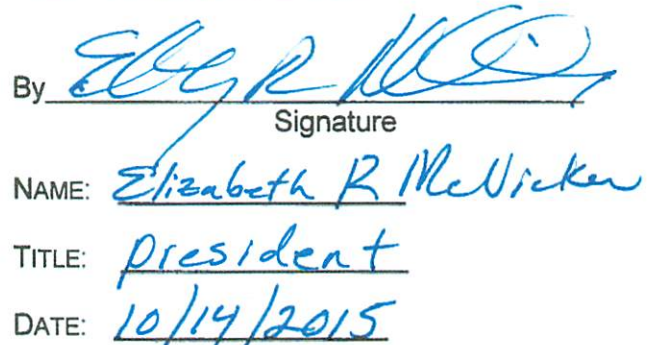 By
Signature
NAME: Elizabeth R McNicker
TITLE: president
DATE: 10/14/2015